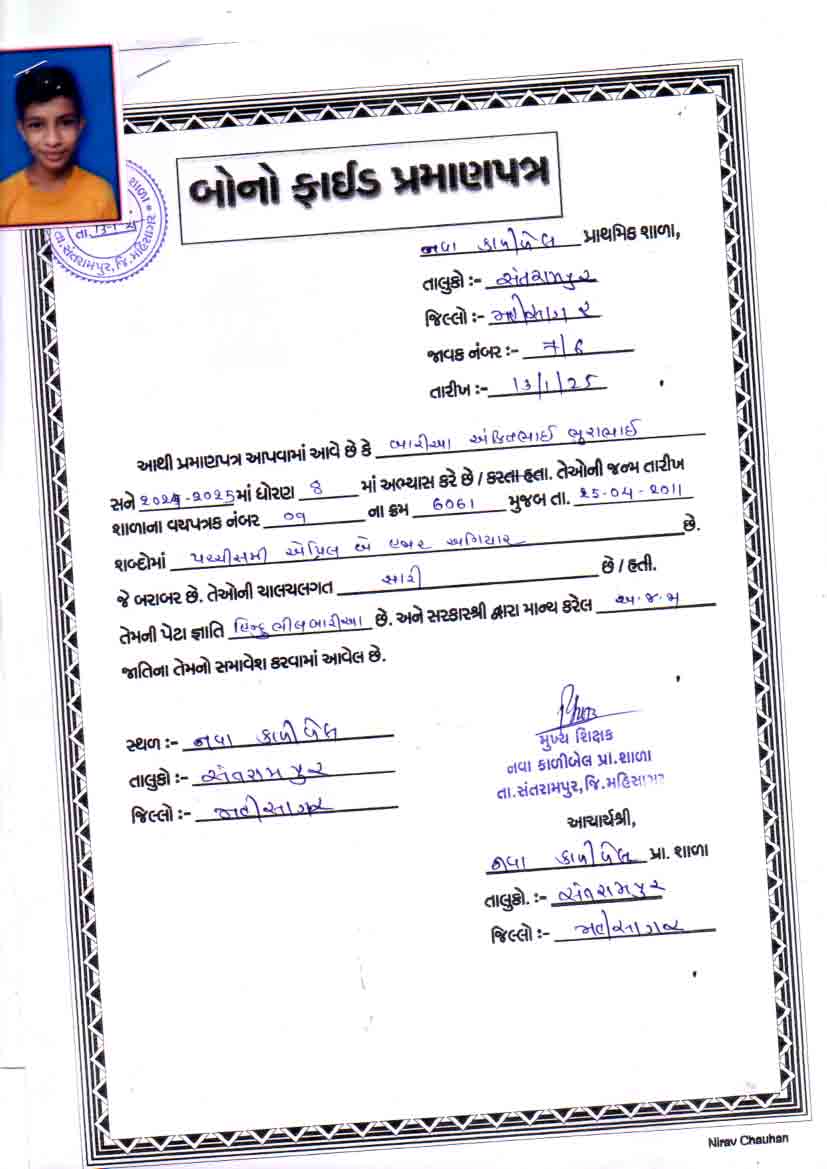 બોનો ફાઈડ પ્રમાણપત્ર
શાળા *
તા. 13-1-25
તા.સંતરામપુર,જિ.મહિસાગર
નવા કાળીબેલ પ્રાથમિક શાળા,
તાલુકો :- સંતરામપુર
જિલ્લો :- મહીસાગર
જાવક નંબર :- 7/6
તારીખ :- 13/1/25
આથી પ્રમાણપત્ર આપવામાં આવે છે કે બારીઆ અંકિતભાઈ ભુરાભાઈ
સને ૨૦૨૪-૨૦૨૫માં ધોરણ 8 માં અભ્યાસ કરે છે / કરતા હતા. તેઓની જન્મ તારીખ
શાળાના વયપત્રક નંબર ૦૧ ના ક્રમ 6061 મુજબ તા. ૨૫-૦૫-૨૦૧૧
શબ્દોમાં પચ્ચીસમી એપ્રિલ બે હજાર અગિયાર છે.
જે બરાબર છે. તેઓની ચાલચલગત સારી છે / હતી.
તેમની પેટા જ્ઞાતિ હિન્દુ ભીલ બારીઆ છે. અને સરકારશ્રી દ્વારા માન્ય કરેલ અ.જ.જ
જાતિના તેમનો સમાવેશ કરવામાં આવેલ છે.
સ્થળ :- નવા કાળીબેલ
તાલુકો :- સંતરામપુર
જિલ્લો :- મહીસાગર
મુખ્ય શિક્ષક
નવા કાળીબેલ પ્રા.શાળા
તા.સંતરામપુર,જિ.મહિસાગર
આચાર્યશ્રી,
નવા કાળીબેલ પ્રા. શાળા
તાલુકો. :- સંતરામપુર
જિલ્લો :- મહીસાગર
Nirav Chauhan